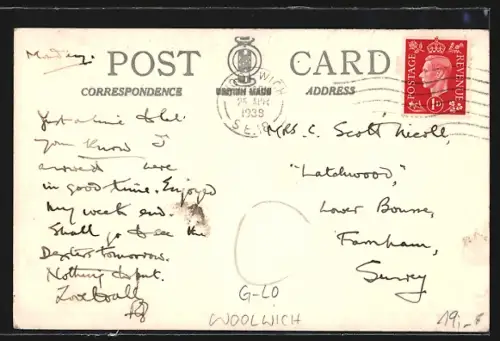 Monday.
POST CARD
BRITISH MADE
CORRESPONDENCE
ADDRESS
WOOLWICH
25 APR
1938
S.E.18
POSTAGE
REVENUE
1D
Just a line to tell
you know I
arrived here
in good time. Enjoyed
my week end.
Shall go to see the
Dexters tomorrow.
Nothing to put.
Love to all
Mrs C. Scott Nicoll,
"Latchwood",
Lower Bourne,
Farnham,
Surrey
G-LO
WOOLWICH
19,-